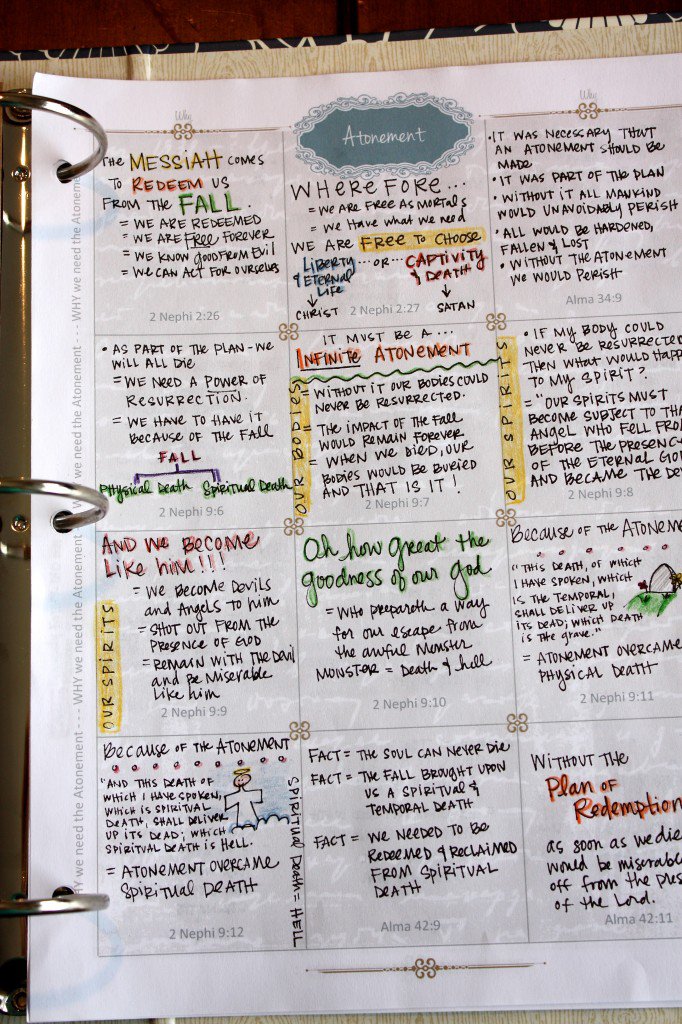 Why
Atonement
Why
WHY we need the Atonement - - - WHY we need the Atonement - - - WHY we need the Atonement
The MESSIAH comes
to REDEEM us
from the FALL.
= WE ARE REDEEMED
= WE ARE FREE FOREVER
= WE KNOW GOOD FROM EVIL
= WE CAN ACT FOR OURSELVES
2 Nephi 2:26
WHEREFORE...
= WE ARE FREE AS MORTALS
= WE HAVE WHAT WE NEED
WE ARE FREE TO CHOOSE
LIBERTY & ETERNAL LIFE ...OR... CAPTIVITY & DEATH
↓ CHRIST ↓ SATAN
2 Nephi 2:27
• IT WAS NECESSARY THAT
AN ATONEMENT SHOULD BE
MADE
• IT WAS PART OF THE PLAN
• WITHOUT IT ALL MANKIND
WOULD UNAVOIDABLY PERISH
• ALL WOULD BE HARDENED,
FALLEN & LOST
• WITHOUT THE ATONEMENT
WE WOULD PERISH
Alma 34:9
• AS PART OF THE PLAN - WE
WILL ALL DIE
= WE NEED A POWER OF
RESURRECTION.
= WE HAVE TO HAVE IT
BECAUSE OF THE FALL
FALL
Physical Death Spiritual Death
2 Nephi 9:6
IT MUST BE A ...
INFINITE ATONEMENT
OUR BODIES
= WITHOUT IT OUR BODIES COULD
NEVER BE RESURRECTED.
= THE IMPACT OF THE FALL
WOULD REMAIN FOREVER
= WHEN WE DIED, OUR
BODIES WOULD BE BURIED
AND THAT IS IT!
2 Nephi 9:7
OUR SPIRITS
• IF MY BODY COULD
NEVER BE RESURRECTED
THEN WHAT WOULD
TO MY SPIRIT?
= "OUR SPIRITS MUST
BECOME SUBJECT TO
ANGEL WHO FELL FROM
BEFORE THE
OF THE ETERNAL
AND BECAME THE
2 Nephi 9:8
AND WE BECOME
LIKE HIM!!!
OUR SPIRITS
= WE BECOME DEVILS
AND ANGELS TO HIM
= SHUT OUT FROM THE
PRESENCE OF GOD
= REMAIN WITH THE DEVIL
AND BE MISERABLE
LIKE HIM
2 Nephi 9:9
Oh how great the
goodness of our God
= WHO PREPARETH A WAY
FOR OUR ESCAPE FROM
THE AWFUL MONSTER
MONSTER = DEATH & HELL
2 Nephi 9:10
BECAUSE OF THE
"THIS DEATH, OF WHICH
I HAVE SPOKEN, WHICH
IS THE TEMPORAL,
SHALL DELIVER UP
ITS DEAD; WHICH DEATH
IS THE GRAVE."
= ATONEMENT OVERCAME
PHYSICAL DEATH
2 Nephi 9:11
BECAUSE OF THE ATONEMENT
"AND THIS DEATH OF
WHICH I HAVE SPOKEN,
WHICH IS SPIRITUAL
DEATH, SHALL DELIVER
UP ITS DEAD; WHICH
SPIRITUAL DEATH IS HELL.
= ATONEMENT OVERCAME
SPIRITUAL DEATH
2 Nephi 9:12
SPIRITUAL DEATH = HELL
FACT = THE SOUL CAN NEVER DIE
FACT = THE FALL BROUGHT UPON
US A SPIRITUAL &
TEMPORAL DEATH
FACT = WE NEEDED TO BE
REDEEMED & RECLAIMED
FROM SPIRITUAL
DEATH
Alma 42:9
WITHOUT THE
Plan of
Redemption
as soon as we
would be
off from the
of the Lord.
Alma 42:11